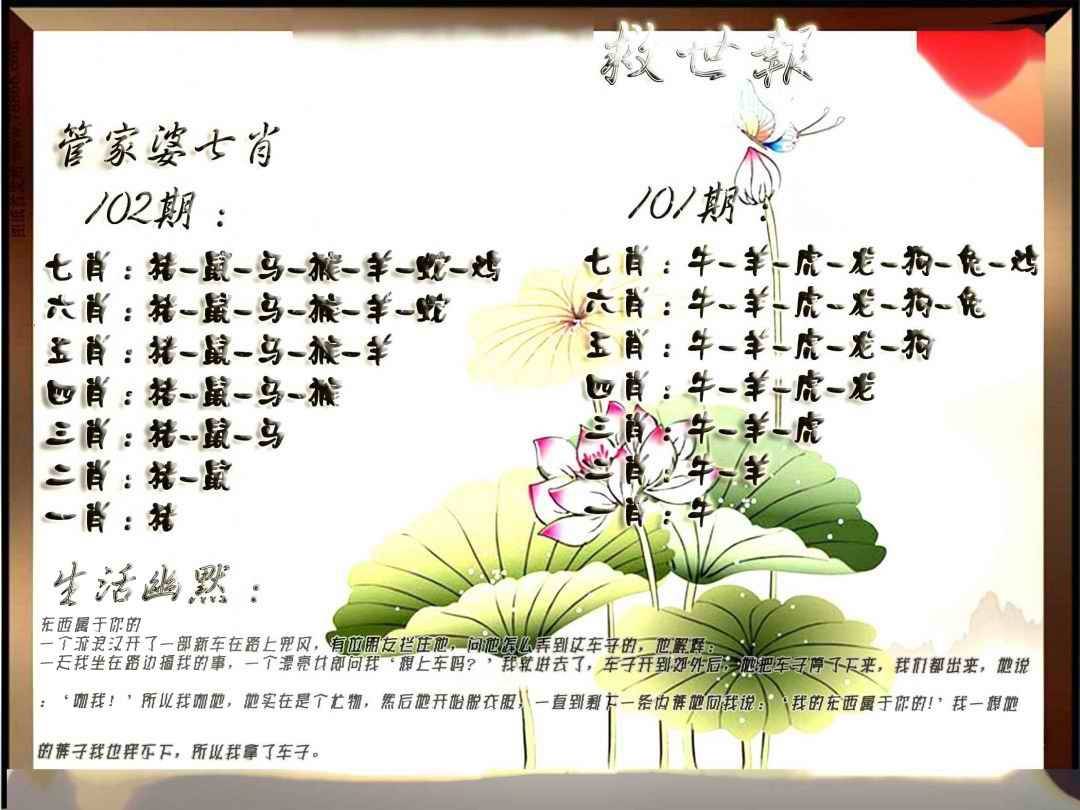 救世報
管家婆七肖
102期：
七肖：猪-鼠-马-猴-羊-蛇-鸡
六肖：猪-鼠-马-猴-羊-蛇
五肖：猪-鼠-马-猴-羊
四肖：猪-鼠-马-猴
三肖：猪-鼠-马
二肖：猪-鼠
一肖：猪
101期：
七肖：牛-羊-虎-龙-狗-兔-鸡
六肖：牛-羊-虎-龙-狗-兔
五肖：牛-羊-虎-龙-狗
四肖：牛-羊-虎-龙
三肖：牛-羊-虎
二肖：牛-羊
一肖：牛
生活幽默：
东西属于你的
一个流浪汉开了一部新车在路上兜风，有位男友拦住他，问他怎么弄到这车子的，他解释：
一天我坐在路边搞我的事，一个漂亮女郎问我‘想上车吗？’我就进去了，车子开到郊外后，她把车子停了下来，我们都出来，她说
：‘吻我！’所以我吻她，她实在是个尤物，然后她开始脱衣服，一直到剩下一条内裤她向我说：‘我的东西属于你的！’我一想她
的裤子我也穿不下，所以我拿了车子。